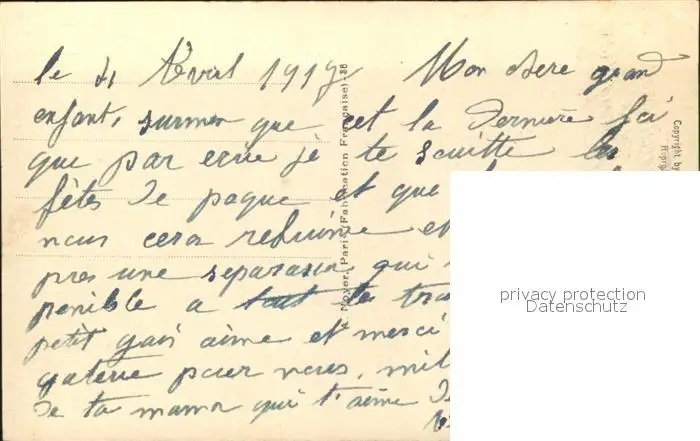 le 21 Avril 1919 Mon chere grand
enfant, surmen que cet la Derniere foi
que par ecrie je te souitte les
fêtes de paque et que
nous cera rebuinie et
pres une separasion qui
penible a tout les
petit gars aime et merci
gaterie pour nous, mil
de ta maman qui t'aime de
A. Noyer, Paris (Fabrication Française) - 36
Copyright by
privacy protection
Datenschutz